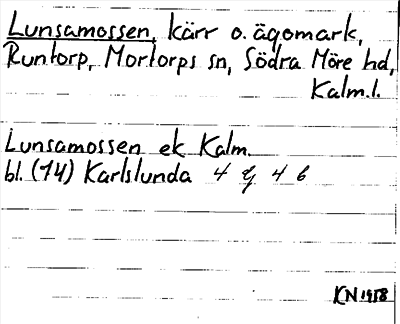 Lunsamossen, kärr o. ägomark,
Runtorp, Mortorps sn, Södra Möre hd,
Kalm.l.
Lunsamossen ek Kalm.
bl. (14) Karlslunda 4 g 4 b
KN 1958